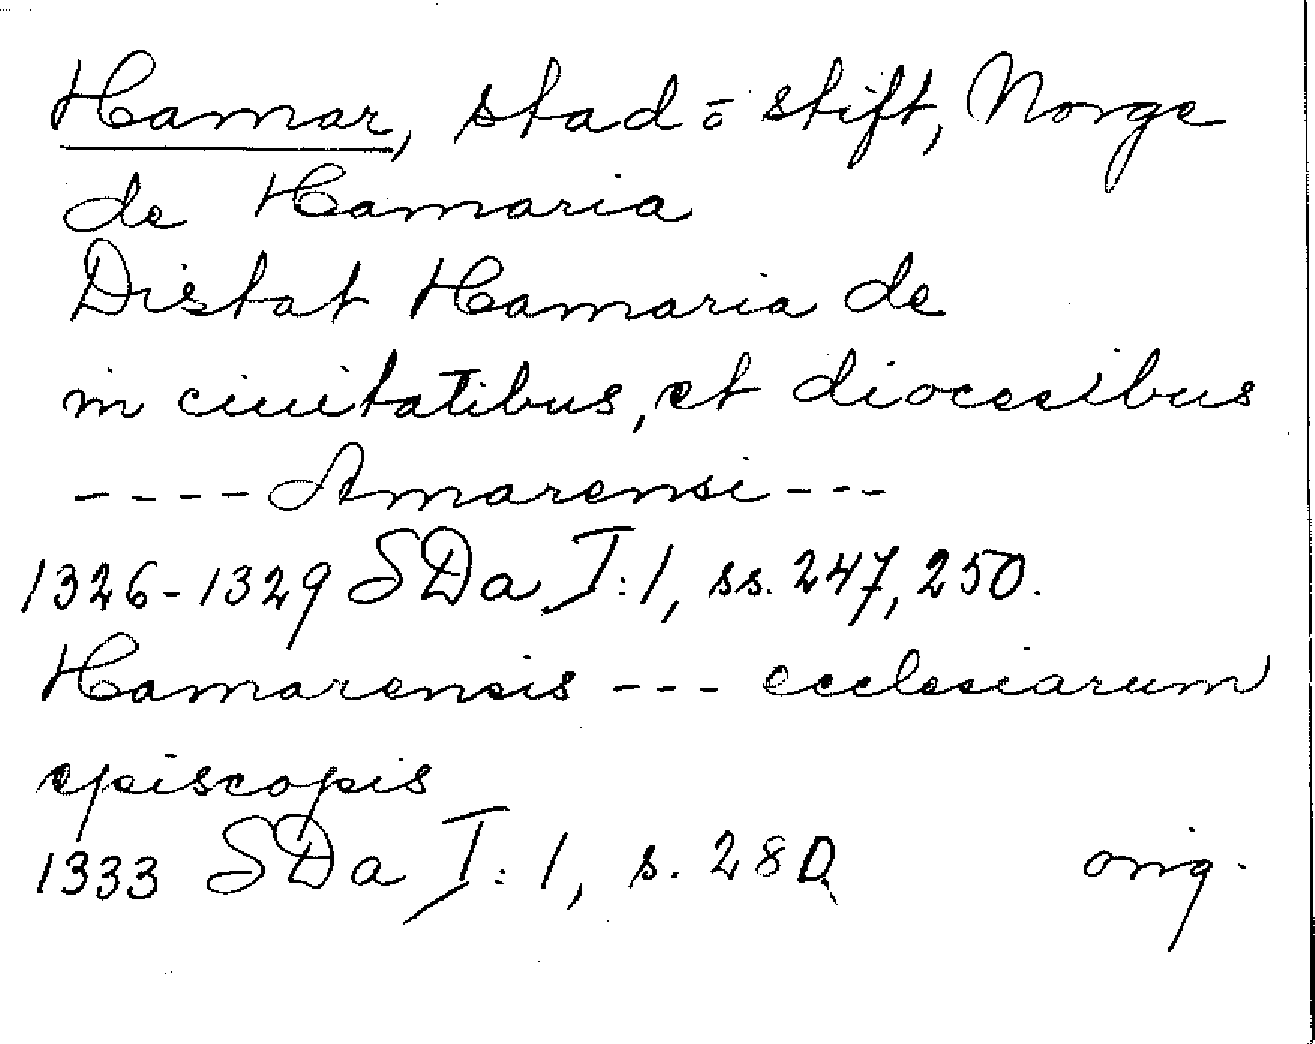 Hamar, stad o stift, Norge
de Hamaria
Distat Hamaria de
in ciuitatibus, et diocesibus
---- Amarensi ---
1326-1329 SDa I:1, ss. 247, 250.
Hamarensis --- ecclesiarum
episcopis
1333 SDa I:1, s. 280 orig.